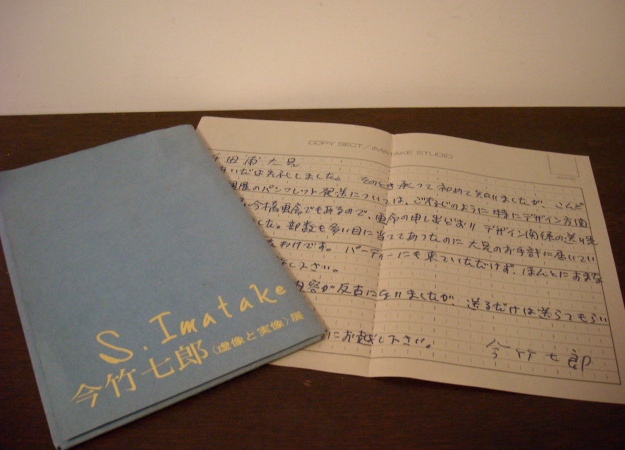 S. Imatake
今竹七郎〈虚像と実像〉展
COPY SECT/IMATAKE STUDIO
大兄
いだは失礼しました。そのとき承って初めて知りましたが、こんど
のパンフレット発送については、ご存じのように特にデザイン方面
でもあるので、画廊の申し出どおりデザイン関係の送り先
した。部数も多い目に当ててあったのに大兄のお手許に届いてい
わけです。パーティーにも来ていただけず、ほんとにすまな
下さい。
が反古になりましたが、送るだけは送らてもらい
にお越し下さい。
今竹七郎